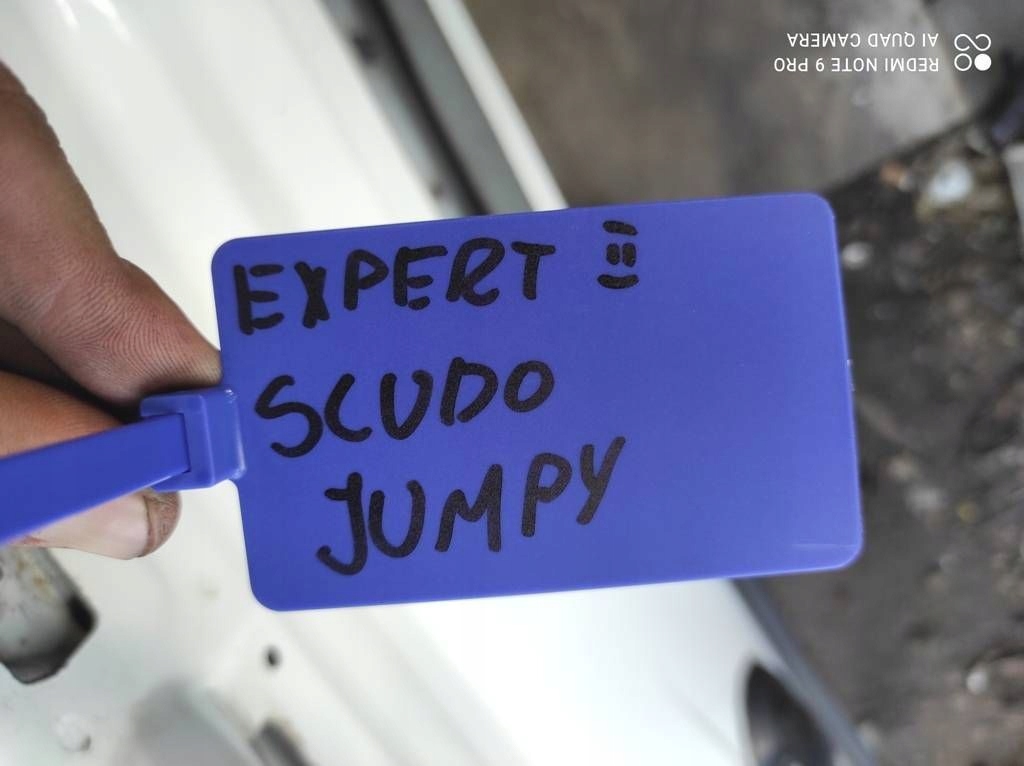 EXPERT II
SCUDO
JUMPY
REDMI NOTE 9 PRO
AI QUAD CAMERA